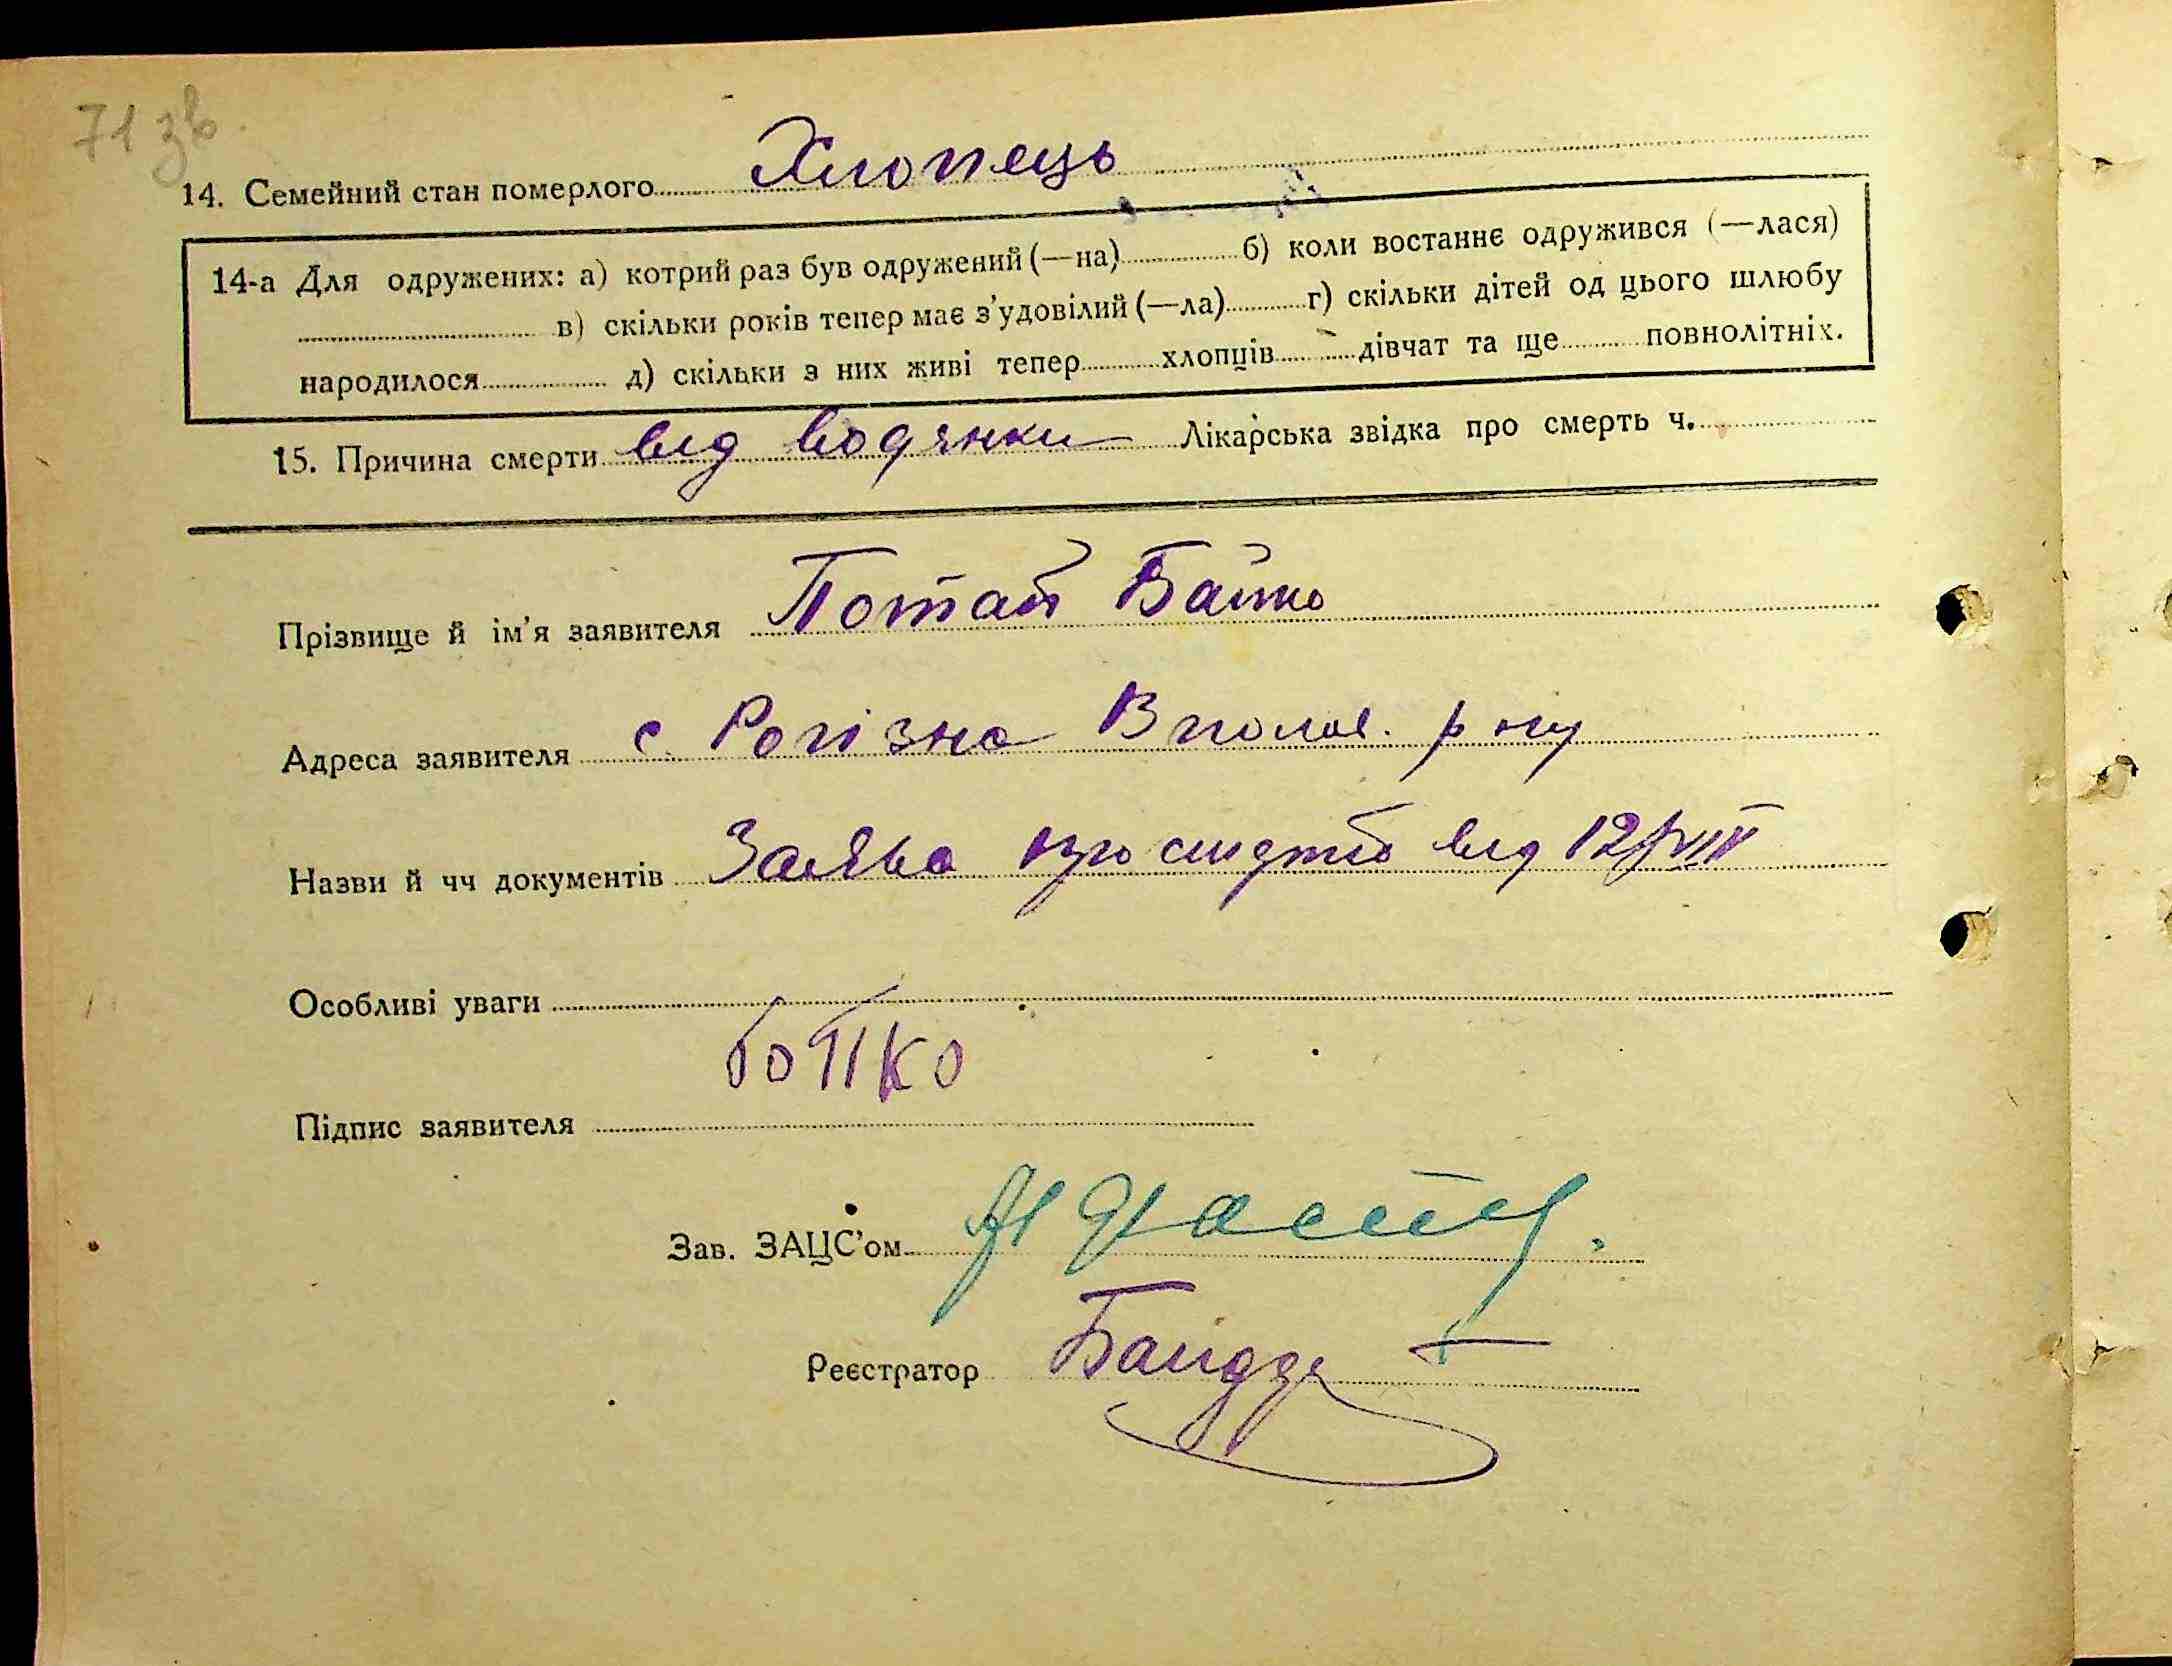 71 зв.
14. Семейний стан померлого Хлопець
14-а Для одружених: а) котрий раз був одружений (—на) б) коли востаннє одружився (—лася)
в) скільки років тепер має з'удовілий (—ла) г) скільки дітей од цього шлюбу
народилося д) скільки з них живі тепер хлопців дівчат та ще повнолітніх.
15. Причина смерти від водянки Лікарська звідка про смерть ч.
Прізвище й ім'я заявителя Потап Бойко
Адреса заявителя с. Рогізна р ну
Назви й чч документів Заява про смерть від 12/VIII
Особливі уваги
Бойко
Підпис заявителя
Зав. ЗАЦС'ом
Реєстратор